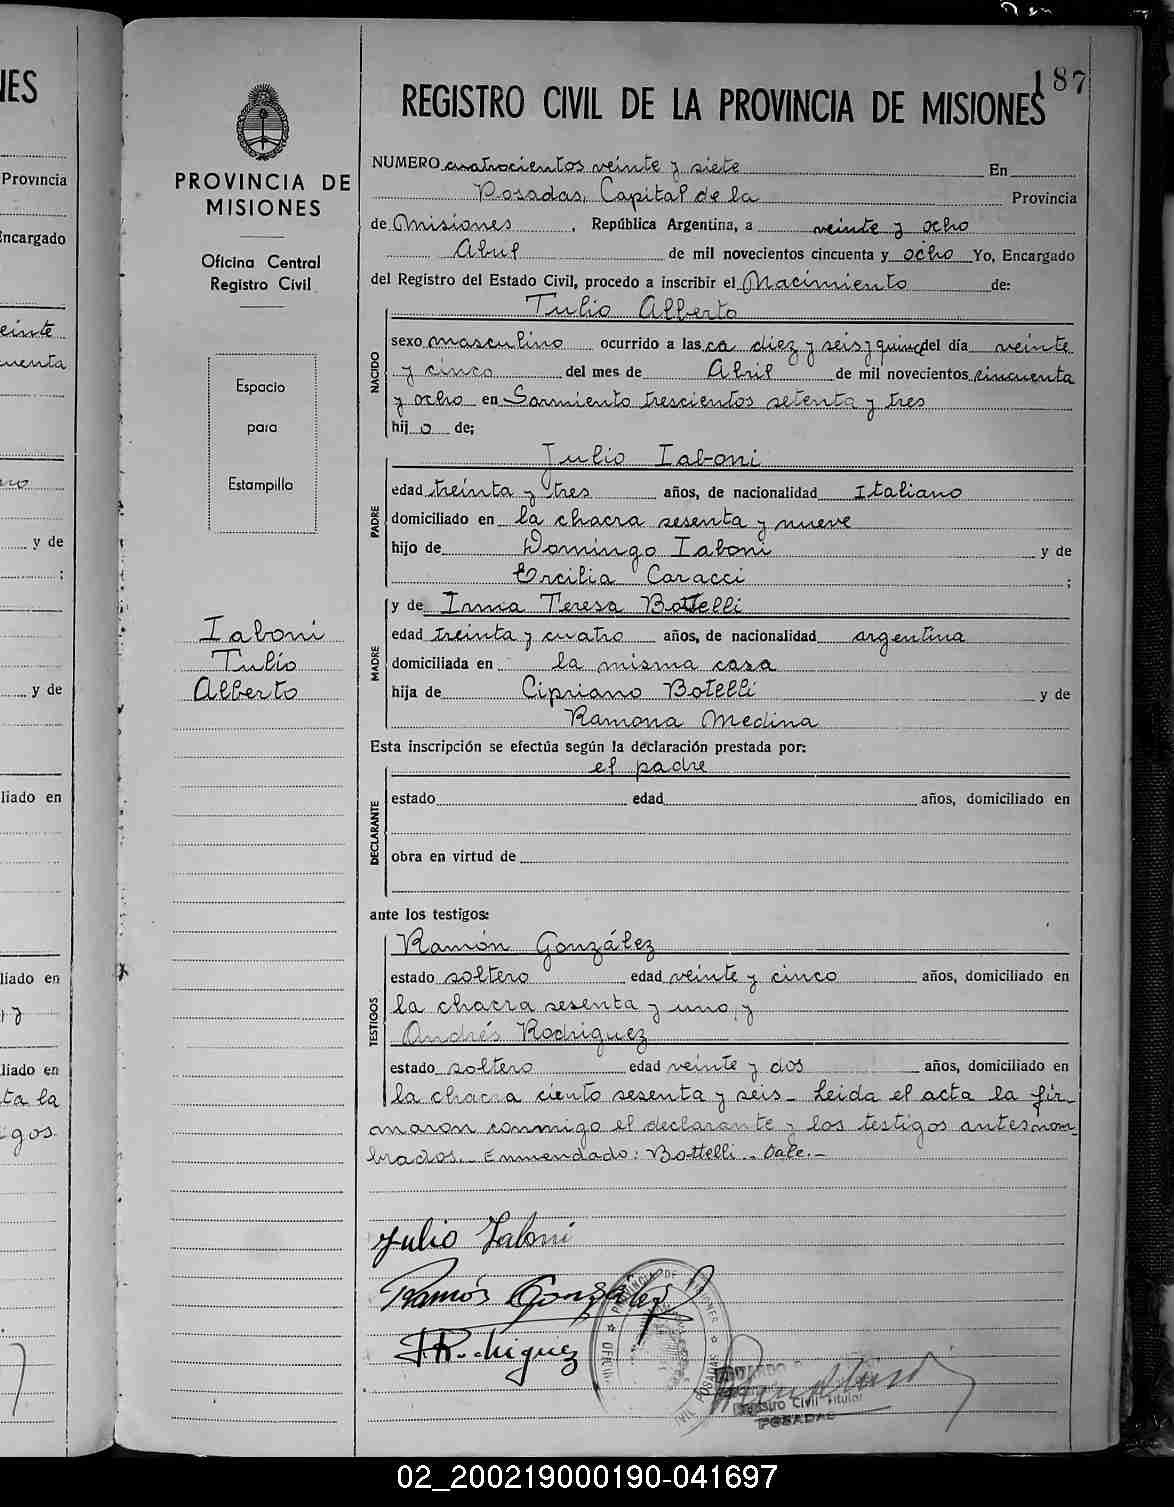 187
REGISTRO CIVIL DE LA PROVINCIA DE MISIONES
PROVINCIA DE
MISIONES
Oficina Central
Registro Civil
Espacio
para
Estampilla
Iaboni
Tulio
Alberto
NUMERO cuatrocientos veinte y siete En
Posadas, Capital de la Provincia
de Misiones, República Argentina, a veinte y ocho
Abril de mil novecientos cincuenta y ocho Yo, Encargado
del Registro del Estado Civil, procedo a inscribir el Nacimiento de:
NACIDO
Tulio Alberto
sexo masculino ocurrido a las ca diez y seis y quince del día veinte
y cinco del mes de Abril de mil novecientos cincuenta
y ocho en Sarmiento trescientos setenta y tres
hijo de;
PADRE
Julio Iaboni
edad treinta y tres años, de nacionalidad Italiano
domiciliado en la chacra sesenta y nueve
hijo de Domingo Iaboni y de
Ercilia Caracci ;
MADRE
y de Irma Teresa Bottelli
edad treinta y cuatro años, de nacionalidad argentina
domiciliada en la misma casa
hija de Cipriano Botelli y de
Ramona Medina
Esta inscripción se efectúa según la declaración prestada por:
DECLARANTE
el padre
estado edad años, domiciliado en
obra en virtud de
ante los testigos:
TESTIGOS
Ramón González
estado soltero edad veinte y cinco años, domiciliado en
la chacra sesenta y uno, y
Andrés Rodriguez
estado soltero edad veinte y dos años, domiciliado en
la chacra ciento sesenta y seis_ Leida el acta la fir_
maron conmigo el declarante y los testigos antesnom_
brados._ Enmendado: Bottelli._ Vale._
Julio Iaboni
Ramón González
A Rodriguez
PROVINCIA DE MISIONES
POSADAS
Registro Civil Titular
POSADAS
IES
Provincia
Encargado
veinte
cuenta
y de
;
y de
liado en
liado en
y
liado en
ta la
igos.
02_200219000190-041697